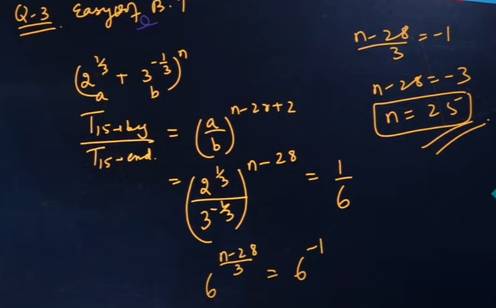 Q-3. Easy of B.T
(2^{1/3} + 3^{-1/3})^n
a b
T_{15→by} / T_{15→end.} = (a/b)^{n-2r+2}
= (2^{1/3} / 3^{-1/3})^{n-28} = 1/6
6^{(n-28)/3} = 6^{-1}
(n-28)/3 = -1
n-28 = -3
n = 25